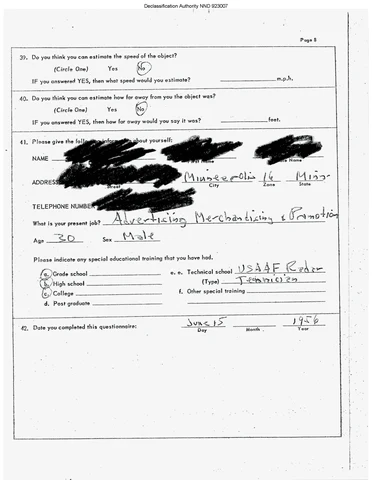 Declassification Authority NND 923007
Page 8
39. Do you think you can estimate the speed of the object?
(Circle One) Yes No
IF you answered YES, then what speed would you estimate? m.p.h.
40. Do you think you can estimate how far away from you the object was?
(Circle One) Yes No
IF you answered YES, then how far away would you say it was? feet.
41. Please give the following information about yourself:
NAME
Name
ADDRESS Minneapolis 16 Minn
Street City Zone State
TELEPHONE NUMBER
What is your present job? Advertising Merchandizing & Promotion
Age 30 Sex Male
Please indicate any special educational training that you have had.
a. Grade school e. Technical school USAAF Radar
b. High school (Type) Technician
c. College f. Other special training
d. Post graduate
42. Date you completed this questionnaire: June 15 1956
Day Month Year